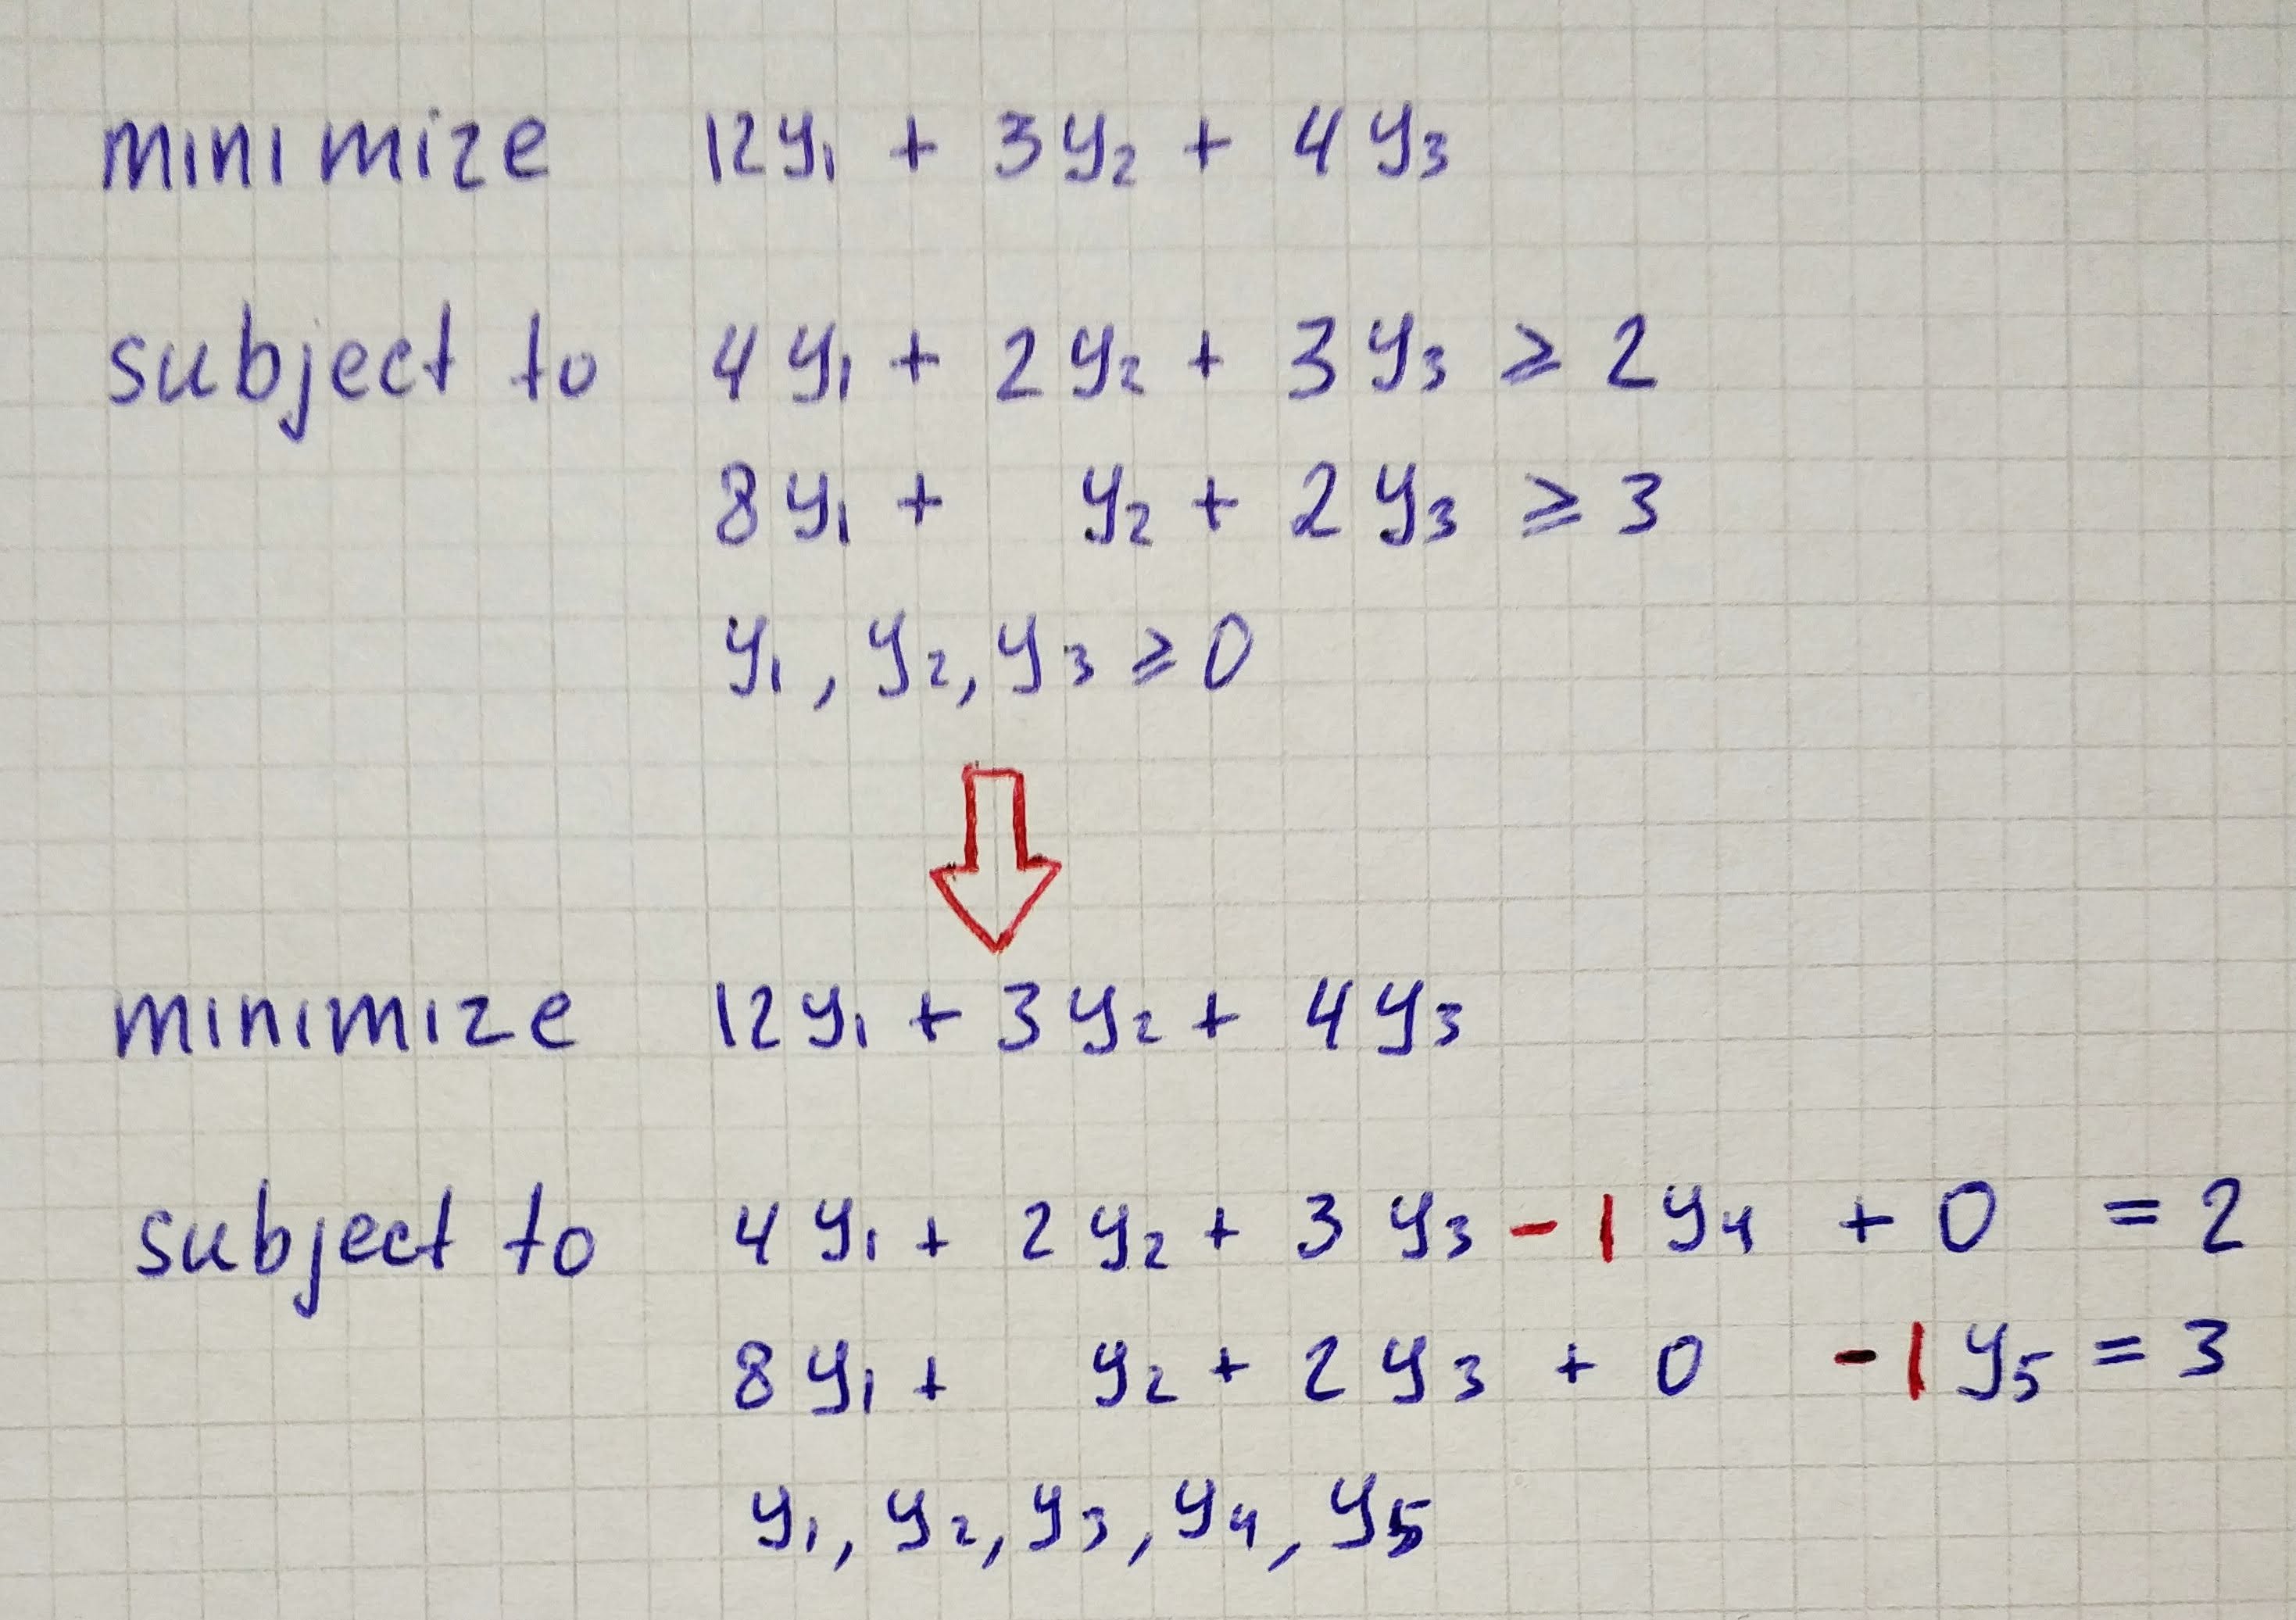 minimize 12y₁ + 3y₂ + 4y₃
subject to 4y₁ + 2y₂ + 3y₃ ⩾ 2
8y₁ + y₂ + 2y₃ ⩾ 3
y₁, y₂, y₃ ⩾ 0
minimize 12y₁ + 3y₂ + 4y₃
subject to 4y₁ + 2y₂ + 3y₃ - 1y₄ + 0 = 2
8y₁ + y₂ + 2y₃ + 0 - 1y₅ = 3
y₁, y₂, y₃, y₄, y₅